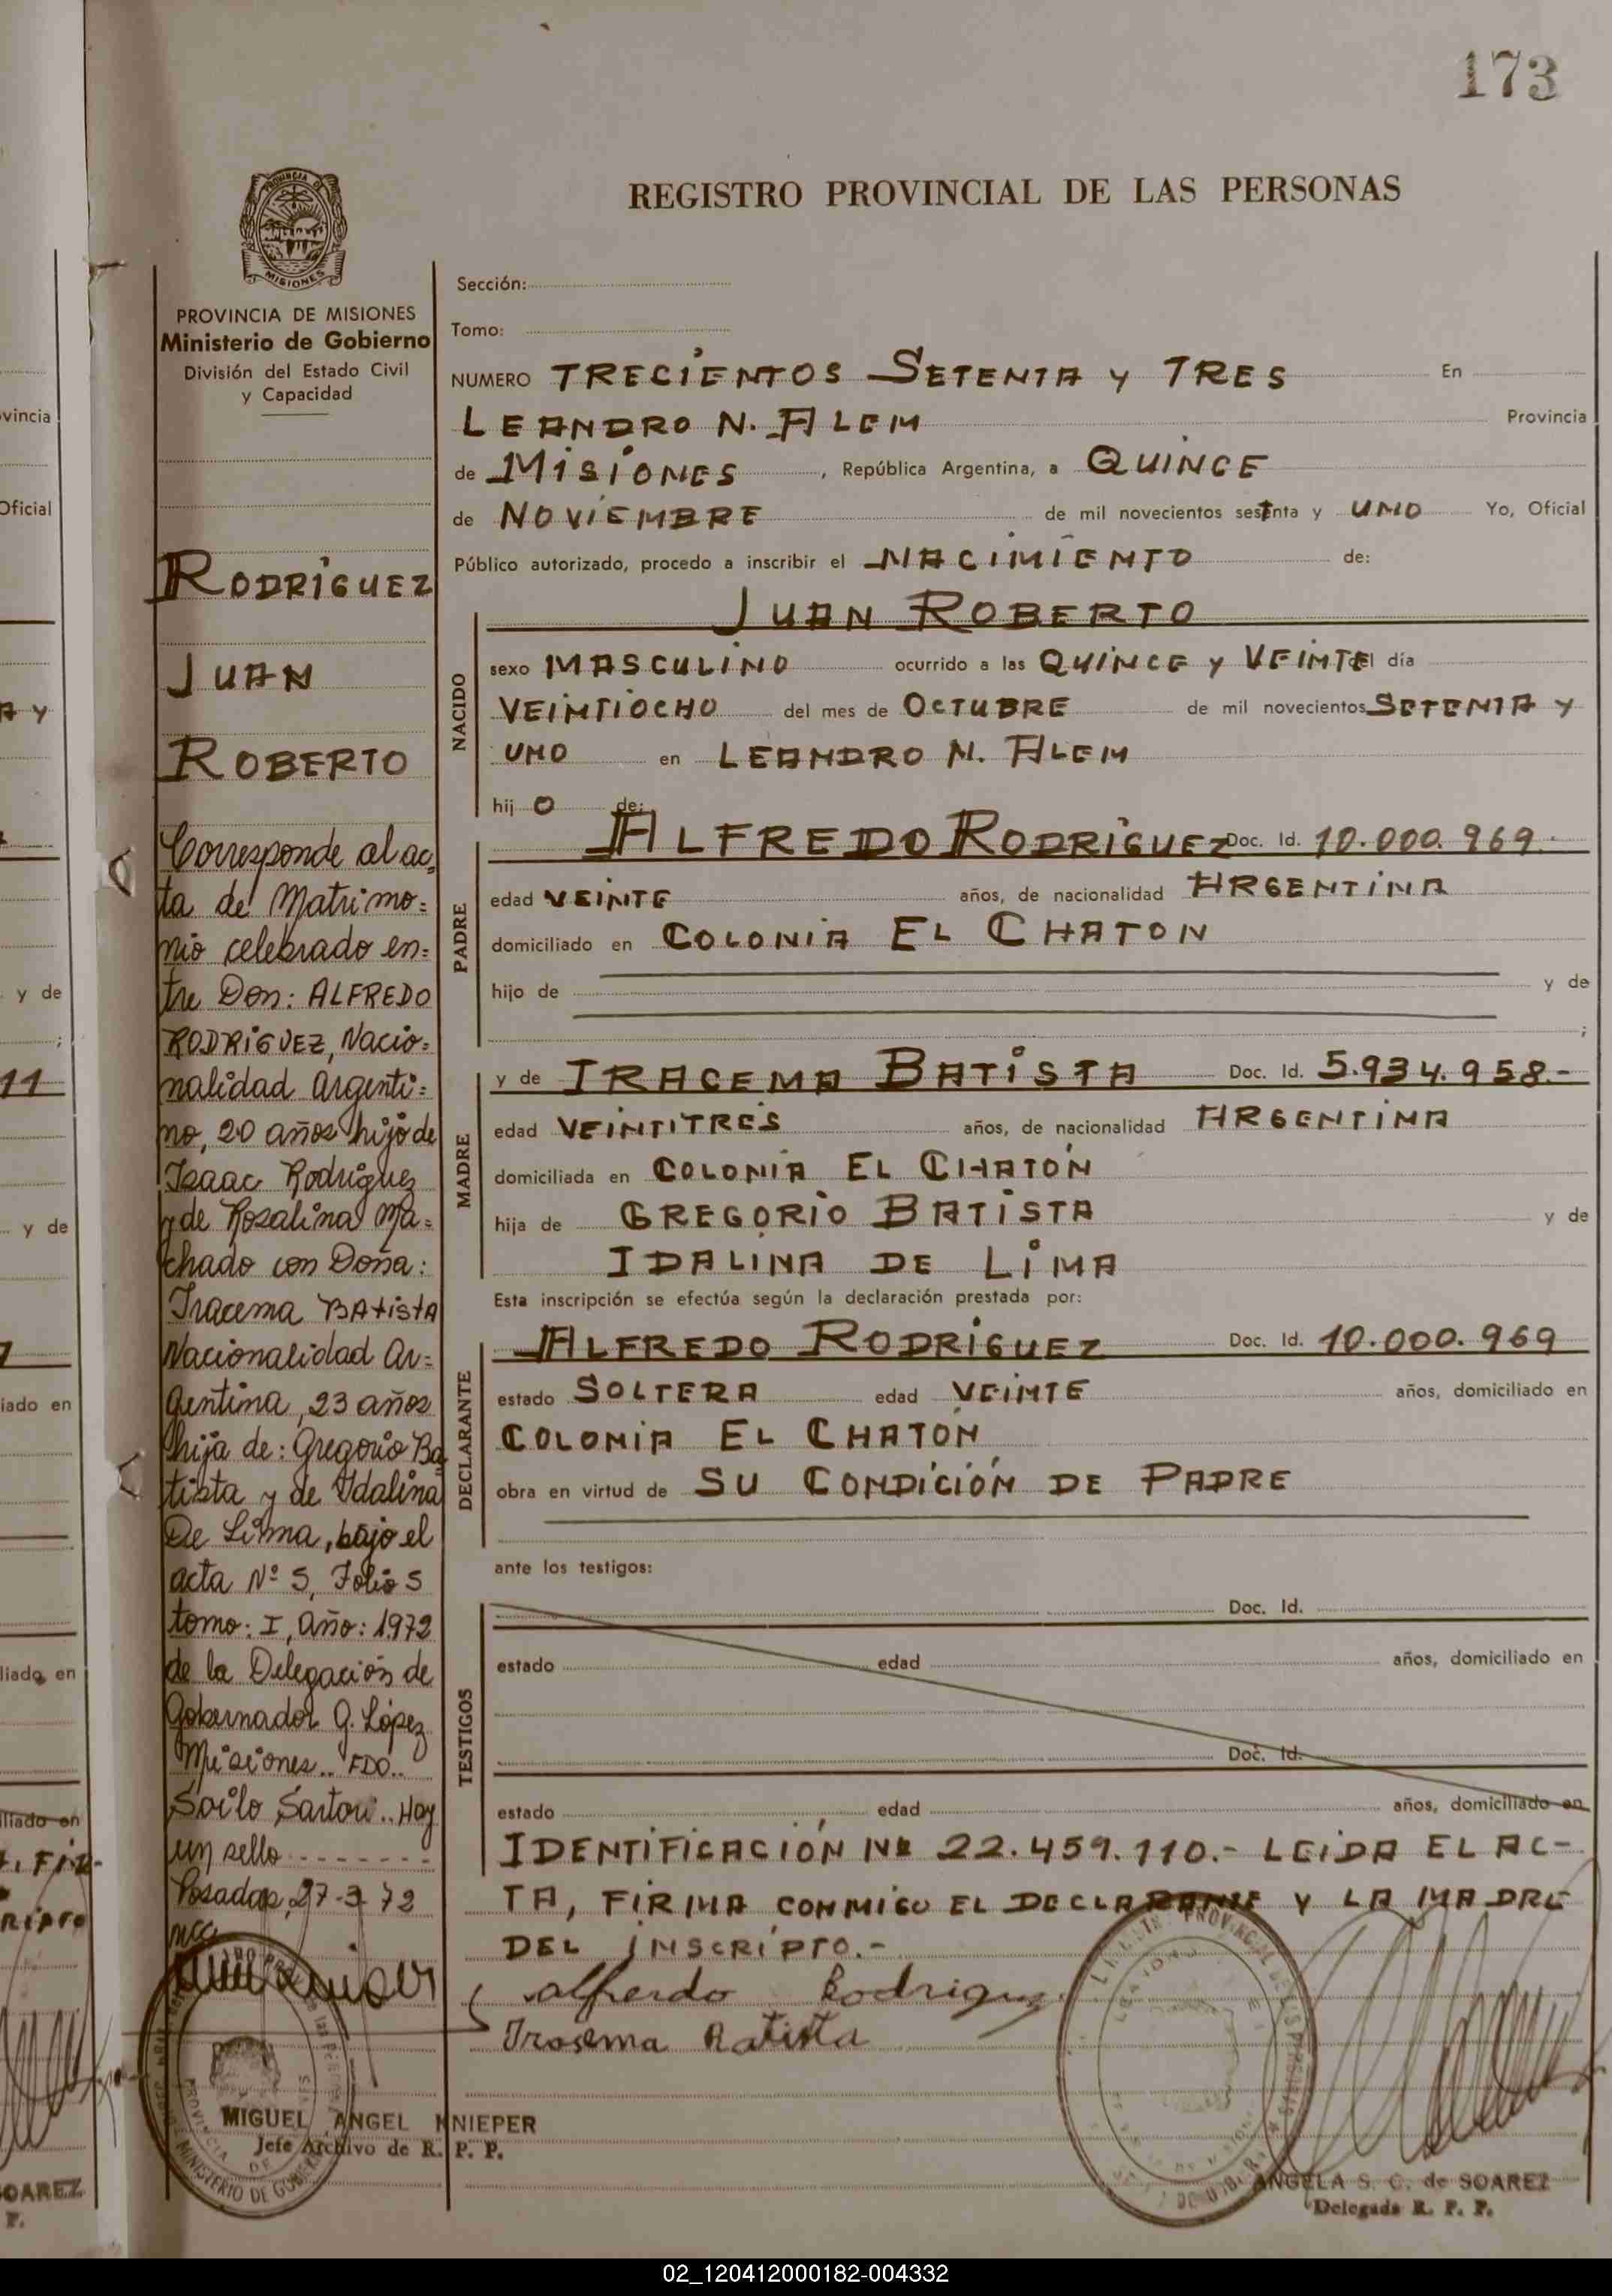 173
REGISTRO PROVINCIAL DE LAS PERSONAS
PROVINCIA DE
MISIONES
PROVINCIA DE MISIONES
Ministerio de Gobierno
División del Estado Civil
y Capacidad
RODRÍGUEZ
JUAN
ROBERTO
Corresponde al ac-
ta de Matrimo=
nio celebrado en=
tre Don: ALFREDO
RODRÍGUEZ, Nacio=
nalidad Argenti=
no, 20 años hijo de
Isaac Rodríguez
y de Rosalina Ma=
chado con Doña:
Iracema BAtistA
Nacionalidad Ar=
gentina, 23 años
hija de: Gregorio Ba
tista y de Idalina
De Lima, bajo el
acta Nº 5, Folio 5
tomo: I, Año: 1972
de la Delegación de
Gobernador G. López
Misiones.. FDO..
Soilo Sartori.. Hay
un sello - - - - - - -
Posadas, 27-3 72
MIGUEL ANGEL KNIEPER
Jefe Archivo de R. P. P.
Sección:
Tomo:
NUMERO TRECIENTOS SETENTA Y TRES En
LEANDRO N. ALEM Provincia
de MISIONES , República Argentina, a QUINCE
de NOVIEMBRE de mil novecientos setenta y UNO Yo, Oficial
Público autorizado, procedo a inscribir el NACIMIENTO de:
JUAN ROBERTO
NACIDO
sexo MASCULINO ocurrido a las QUINCE Y VEINTE del día
VEINTIOCHO del mes de OCTUBRE de mil novecientos SETENTA Y
UNO en LEANDRO N. ALEM
hij O de:
PADRE
ALFREDO RODRÍGUEZ Doc. Id. 10.000.969.
edad VEINTE años, de nacionalidad ARGENTINA
domiciliado en COLONIA EL CHATON
hijo de y de
;
MADRE
y de IRACEMA BATISTA Doc. Id. 5.934.958.-
edad VEINTITRÉS años, de nacionalidad ARGENTINA
domiciliada en COLONIA EL CHATÓN
hija de GREGORIO BATISTA y de
IDALINA DE LIMA
Esta inscripción se efectúa según la declaración prestada por:
DECLARANTE
ALFREDO RODRÍGUEZ Doc. Id. 10.000.969
estado SOLTERA edad VEINTE años, domiciliado en
COLONIA EL CHATÓN
obra en virtud de SU CONDICIÓN DE PADRE
ante los testigos:
TESTIGOS
Doc. Id.
estado edad años, domiciliado en
Doc. Id.
estado edad años, domiciliado en
IDENTIFICACIÓN Nº 22.459.110.- LEIDA EL AC-
TA, FIRMA CONMIGO EL DECLARANTE Y LA MADRE
DEL INSCRIPTO.-
Alfredo Rodriguez
Irasema Batista
ANGELA S. C. de SOAREZ
Delegada R. P. P.
02_120412000182-004332